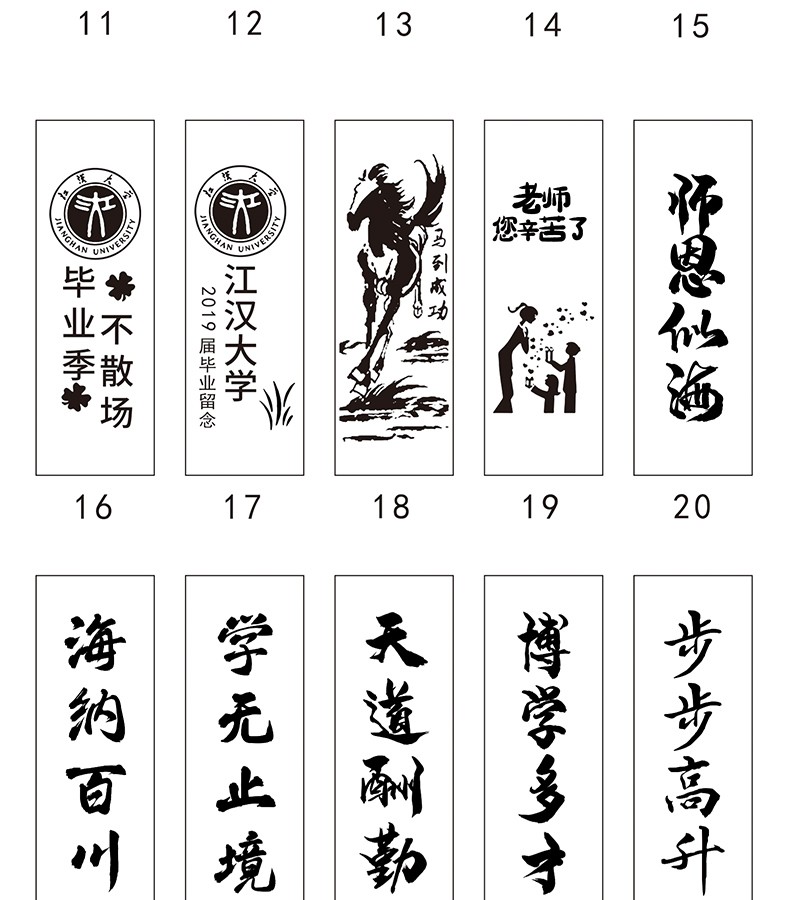 11 12 13 14 15
江漢大学
JIANGHAN UNIVERSITY
毕业季
不散场
江漢大学
JIANGHAN UNIVERSITY
江汉大学
2019届毕业留念
马到成功
老师
您辛苦了
师恩似海
16 17 18 19 20
海纳百川
学无止境
天道酬勤
博学多才
步步高升